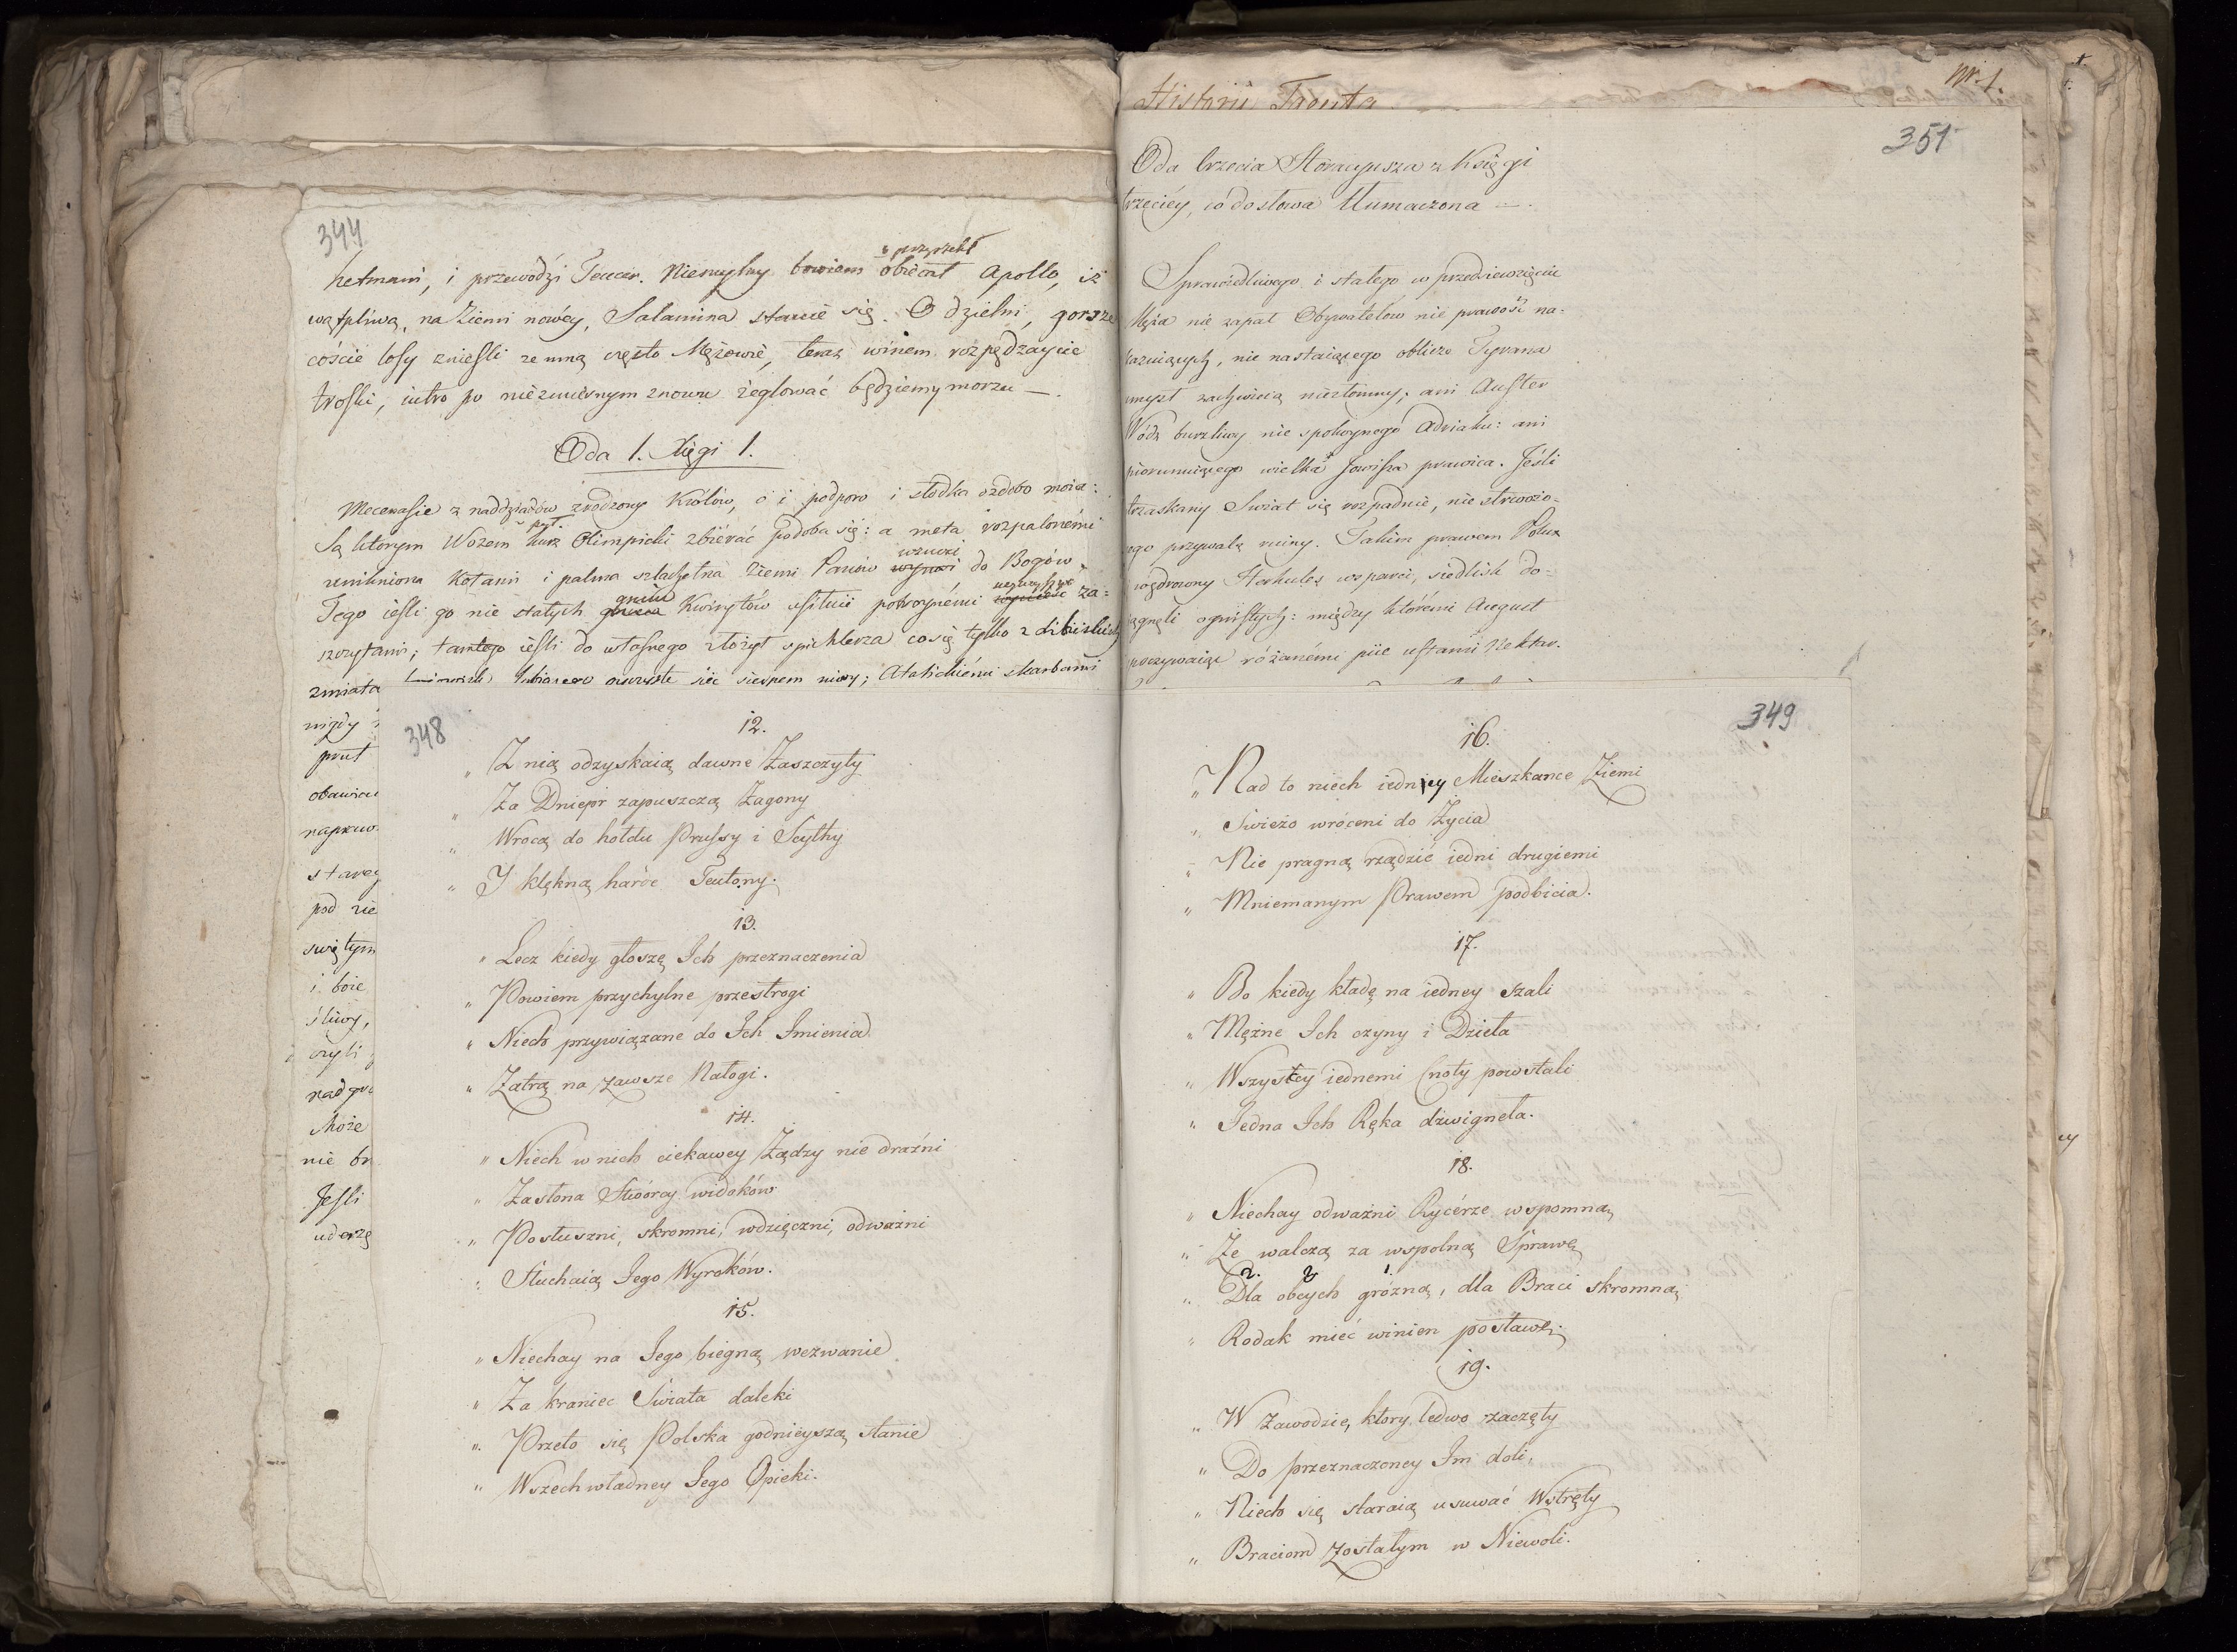 344
i przyrzekł
hetmani, i przewodzi Teucer. Niemylny bowiem obiecał Apollo, iż
wątpliwa, na Ziemi nowéy, Salamina stanie się. O dzielni, gorsze
coście losy znieśli ze mną często Mężowie, teraz winem rozpędzaycie
troski, iutro po niezmiernym znowu żeglować będziemy morzu —.
Oda 1. Xięgi 1.
Mecenasie z naddziadów zrodzony Królów, o i podporo i słodka ozdobo moia:
Są ktorym Wozem kurz Olimpicki zbiérać podoba się: a meta rozpalonémi
unikniona Kołami i palma szlachetna Ziemi Panów wznosi do Bogów.
Tego ieśli go nie stałych gmin Kwirytów usiłuie potroynémi za-
szczytami; tamtego ieśli do własnego złożył spichlerza co się tylko z libiiskich
zmiata
nigdy
prut
obawia
napraw
stareg
pod zie
świętym
i boie
śliwy,
czyli
nadgro
Może
nie br
Jeśli
uderzę
348
12.
„ Z nią odzyskaią dawne Zaszczyty
„ Za Dniepr zapuszczą Zagony
„ Wrocą do hołdu Prussy i Scythy
„ Y klękną harde Teutony.
13.
„ Lecz kiedy głoszę Ich przeznaczenia
„ Powiem przychylne przestrogi
„ Niech przywiązane do Ich Imienia
„ Zatrą na zawsze Nałogi.
14.
„ Niech w nich ciekawey Żądzy nie draźni
„ Zasłona Stwórcy widoków
„ Posłuszni, skromni, wdzięczni, odważni
„ Słuchaią Jego Wyroków.
15.
„ Niechay na Jego biegną wezwanie
„ Za kraniec Świata daleki
„ Przeto się Polska godnieyszą stanie
„ Wszechwładney Jego Opieki.
Historii Fronta
Nr. 1.
351
Oda trzecia Horacyusza z Księgi
trzeciéy, co do słowa tłumaczona —.
Sprawiedliwego i stałego w przedsiewzięciu
Męża nie zapał Obywatelów nie prawość na-
kazuiących, nie nastaiącego oblicze Tyrana
umysł zachwieią niezłomny; ani Auster
Wódz burzliwy nie spokoynego Adriaku: ani
piorunuiącego wielka Jowisza prawica. Jeśli
trzaskany Świat się rozpadnie, nie strwożo-
nego przywalą ruiny. Takim prawem Polux
i wędrowny Herkules wsparci, siedlisk do-
sięgnęli ognistych: między któremi August
spoczywaiąc różanémi piie ustami Nektar.
349
16.
„ Nad to niech iedney Mieszkance Ziemi
„ Świeżo wróceni do Życia
„ Nie pragną rządzić iedni drugiemi
„ Mniemanym Prawem podbicia.
17.
„ Bo kiedy kładę na iedney szali
„ Mężne Ich czyny i Dzieła
„ Wszyscy iednemi Cnoty powstali
„ Jedna Ich Ręka dzwigneła.
18.
„ Niechay odważni Rycérze wspomną,
„ Ze walczą za wspolną Sprawę,
2. 3 1.
„ Dla obcych gróżną, dla Braci skromną,
„ Rodak mieć winien postawę.
19.
„ W Zawodzie, ktory ledwo zaczęty
„ Do przeznaczoney Im doli,
„ Niech się staraią usuwać Wstręty
„ Braciom Zostałym w Niewoli.